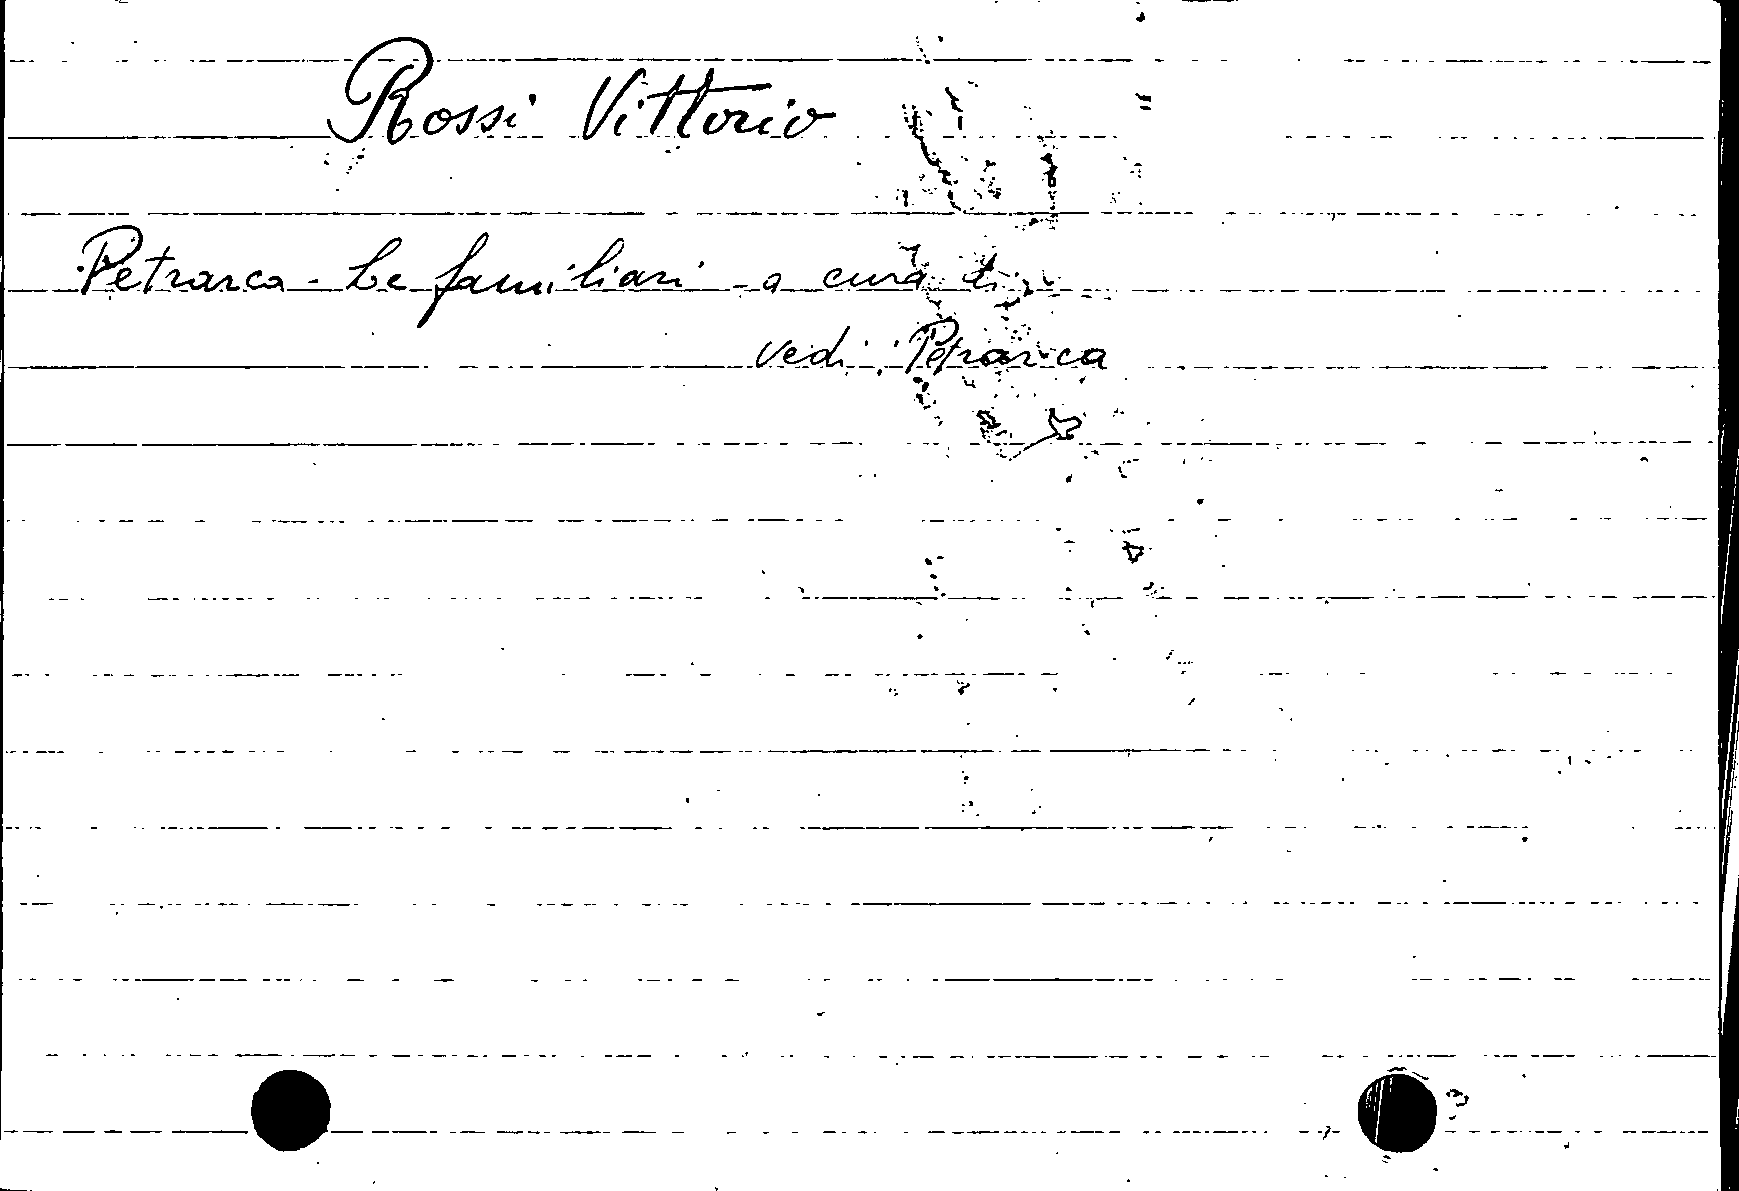 Rossi Vittorio
Petrarca - Le familiari - a cura di
vedi: Petrarca